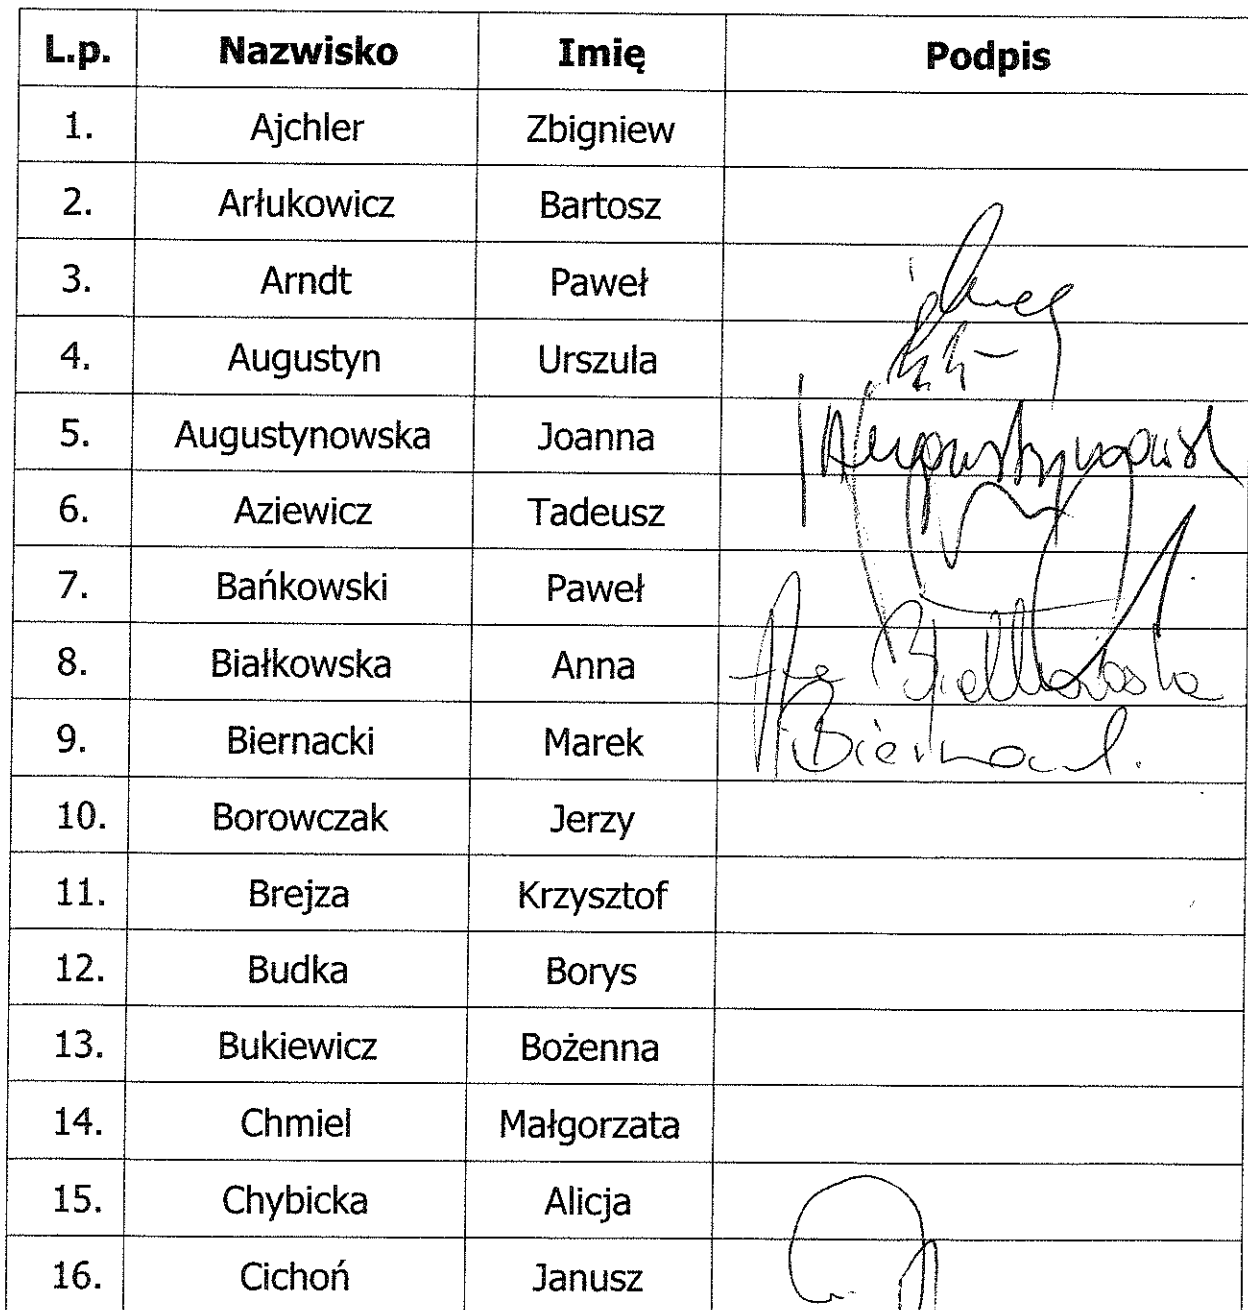 L.p. Nazwisko Imię Podpis
1. Ajchler Zbigniew
2. Arłukowicz Bartosz
3. Arndt Paweł
4. Augustyn Urszula
5. Augustynowska Joanna
6. Aziewicz Tadeusz
7. Bańkowski Paweł
8. Białkowska Anna Białkowska
9. Biernacki Marek
10. Borowczak Jerzy
11. Brejza Krzysztof
12. Budka Borys
13. Bukiewicz Bożenna
14. Chmiel Małgorzata
15. Chybicka Alicja
16. Cichoń Janusz